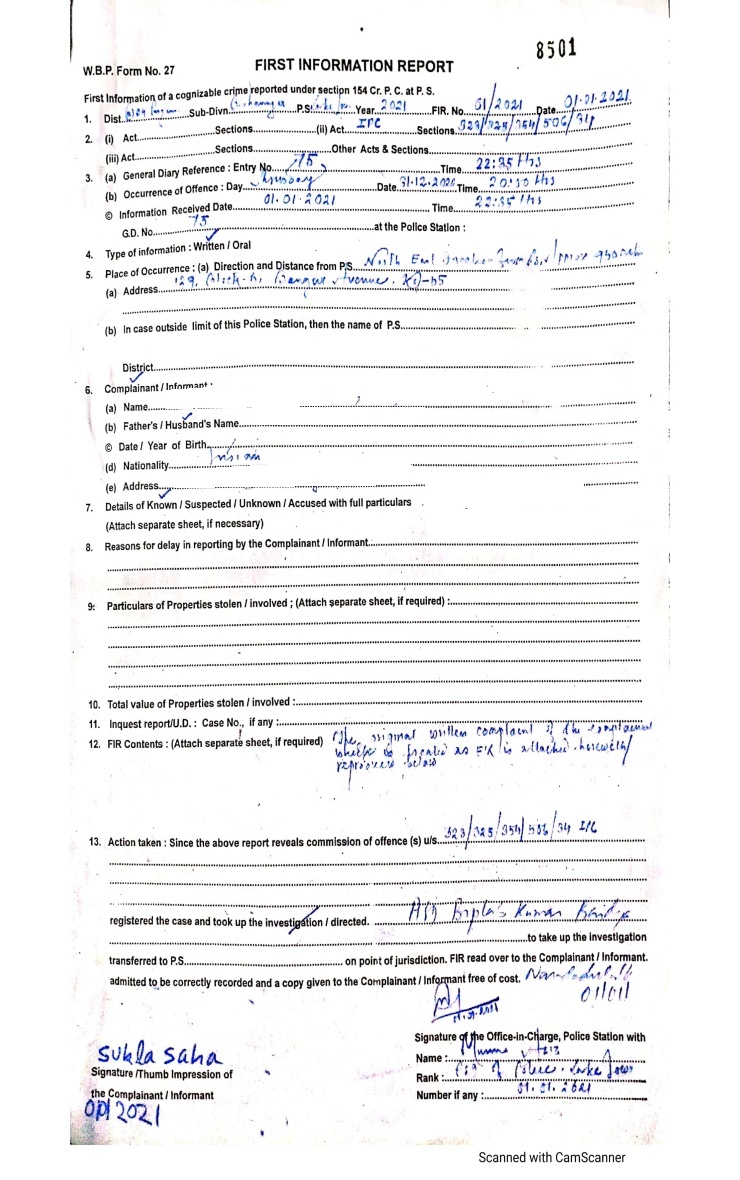 8501
W.B.P. Form No. 27
FIRST INFORMATION REPORT
First Information of a cognizable crime reported under section 154 Cr. P. C. at P. S.
1. Dist. Sub-Divn. P.S. Year 2021 FIR. No. 01/2021 Date 01.01.2021
2. (i) Act Sections (ii) Act IPC Sections 323/325/354/506/34
(iii) Act Sections Other Acts & Sections
3. (a) General Diary Reference : Entry No. 75 Time 22:35 Hrs
(b) Occurrence of Offence : Day Thursday Date 31.12.2020 Time 20:30 Hrs
© Information Received Date 01.01.2021 Time 22:35 Hrs
G.D. No. 75 at the Police Station :
4. Type of information : Written / Oral
5. Place of Occurrence : (a) Direction and Distance from P.S. North East
(a) Address 129, Block-A, Bangur Avenue, Kol-55
(b) In case outside limit of this Police Station, then the name of P.S.
District
6. Complainant / Informant :
(a) Name
(b) Father's / Husband's Name
© Date / Year of Birth
(d) Nationality Indian
(e) Address
7. Details of Known / Suspected / Unknown / Accused with full particulars
(Attach separate sheet, if necessary)
8. Reasons for delay in reporting by the Complainant / Informant
9: Particulars of Properties stolen / involved ; (Attach separate sheet, if required) :
10. Total value of Properties stolen / involved :
11. Inquest report/U.D. : Case No., if any :
12. FIR Contents : (Attach separate sheet, if required) The original written complaint of the complainant
which is treated as FIR is attached herewith/
reproduced below
13. Action taken : Since the above report reveals commission of offence (s) u/s. 323/325/354/506/34 IPC
registered the case and took up the investigation / directed. ASI Kumar
to take up the investigation
transferred to P.S. on point of jurisdiction. FIR read over to the Complainant / Informant.
admitted to be correctly recorded and a copy given to the Complainant / Informant free of cost.
01/01/
01.01.2021
Signature of the Office-in-Charge, Police Station with
Name :
Rank : of Police. Lake Town
Number if any : 01.01.2021
Sukla Saha
Signature /Thumb Impression of
the Complainant / Informant
Scanned with CamScanner